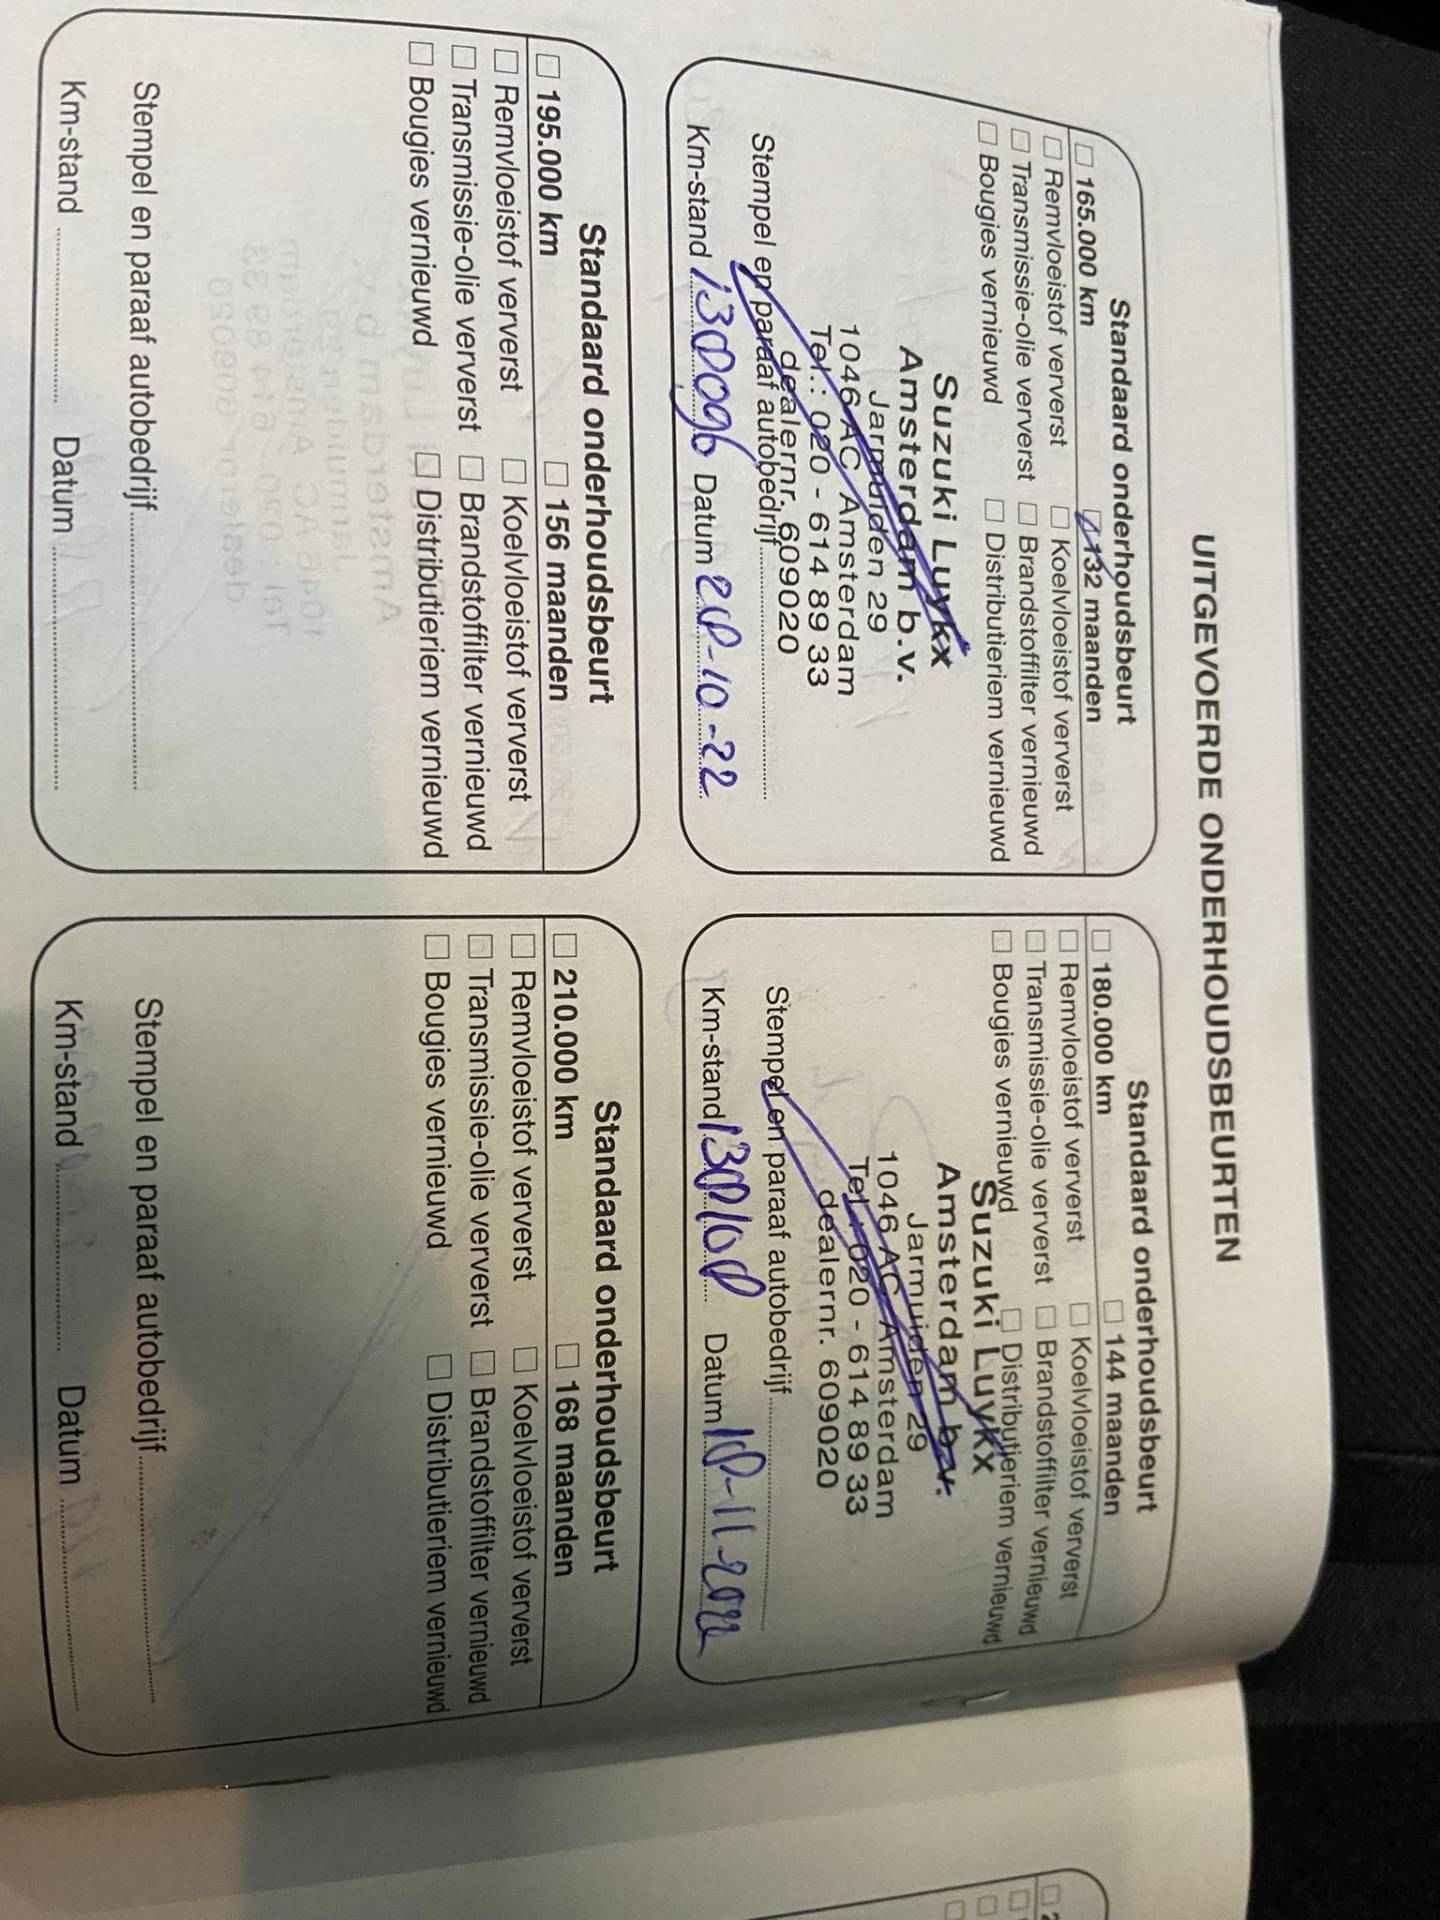 UITGEVOERDE ONDERHOUDSBEURTEN
Standaard onderhoudsbeurt
165.000 km 132 maanden
Remvloeistof ververst Koelvloeistof ververst
Transmissie-olie ververst Brandstoffilter vernieuwd
Bougies vernieuwd Distributieriem vernieuwd
Suzuki Luykx
Amsterdam b.v.
Jarmuiden 29
1046 AC Amsterdam
Tel.: 020 - 614 89 33
dealernr. 609020
Stempel en paraaf autobedrijf
Km-stand Datum
Standaard onderhoudsbeurt
180.000 km 144 maanden
Remvloeistof ververst Koelvloeistof ververst
Transmissie-olie ververst Brandstoffilter vernieuwd
Bougies vernieuwd Distributieriem vernieuwd
Suzuki Luykx
Amsterdam b.v.
Jarmuiden 29
1046 AC Amsterdam
Tel.: 020 - 614 89 33
dealernr. 609020
Stempel en paraaf autobedrijf
Km-stand Datum
Standaard onderhoudsbeurt
195.000 km 156 maanden
Remvloeistof ververst Koelvloeistof ververst
Transmissie-olie ververst Brandstoffilter vernieuwd
Bougies vernieuwd Distributieriem vernieuwd
Stempel en paraaf autobedrijf
Km-stand Datum
Standaard onderhoudsbeurt
210.000 km 168 maanden
Remvloeistof ververst Koelvloeistof ververst
Transmissie-olie ververst Brandstoffilter vernieuwd
Bougies vernieuwd Distributieriem vernieuwd
Stempel en paraaf autobedrijf
Km-stand Datum